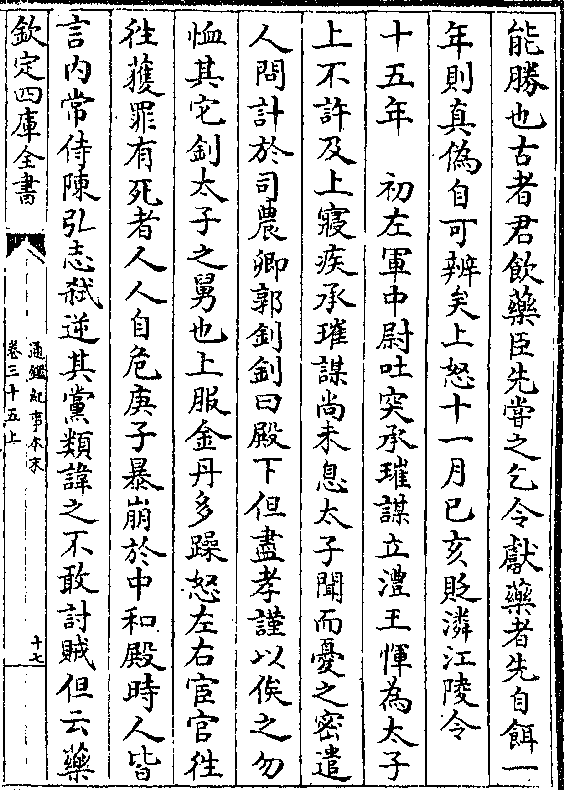 能勝也古者君飲藥臣先嘗之乞令獻藥者先自餌一
年則真偽自可辨矣上怒十一月己亥貶潾江陵令
十五年　初左軍中尉吐突承璀謀立澧王惲為太子
上不許及上寢疾承璀謀尚未息太子聞而憂之密遣
人問計於司農卿郭釗釗曰殿下但盡孝謹以俟之勿
恤其它釗太子之舅也上服金丹多躁怒左右宦官往
往獲罪有死者人人自危庚子暴崩於中和殿時人皆
言内常侍陳弘志弑逆其黨類諱之不敢討賊但云藥
欽定四庫全書
通鑑紀事本末
卷三十五上
十七